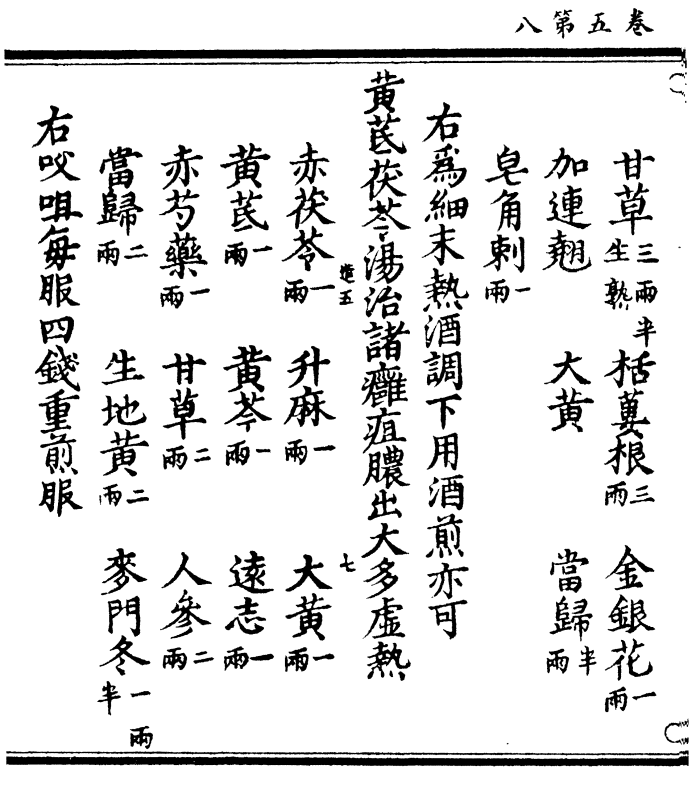 卷五第八
甘草三兩半生熟 栝蔞根三兩 金銀花一兩
加連翹 大黃 當歸半兩
皂角刺一兩
右爲細末熱酒調下用酒煎亦可
黃芪茯苓湯治諸癰疽膿出大多虛熱
赤茯苓一兩 升麻一兩 大黃一兩
黃芪一兩 黃芩一兩 遠志一兩
赤芍藥一兩 甘草二兩 人參二兩
當歸二兩 生地黃二兩 麥門冬一兩半
右㕮咀每服四錢重煎服
五
七